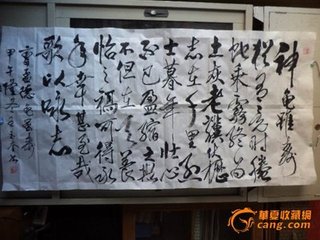 神龟雖寿
猶有竟时騰
蛇乘霧終为
土灰老驥伏櫪
志在千里烈
士暮年壮心
不已盈缩之期
不但在天養
怡之福可得永
年幸甚至哉
歌以咏志
曹孟德龟虽寿
甲午
華夏收藏網
cang.com